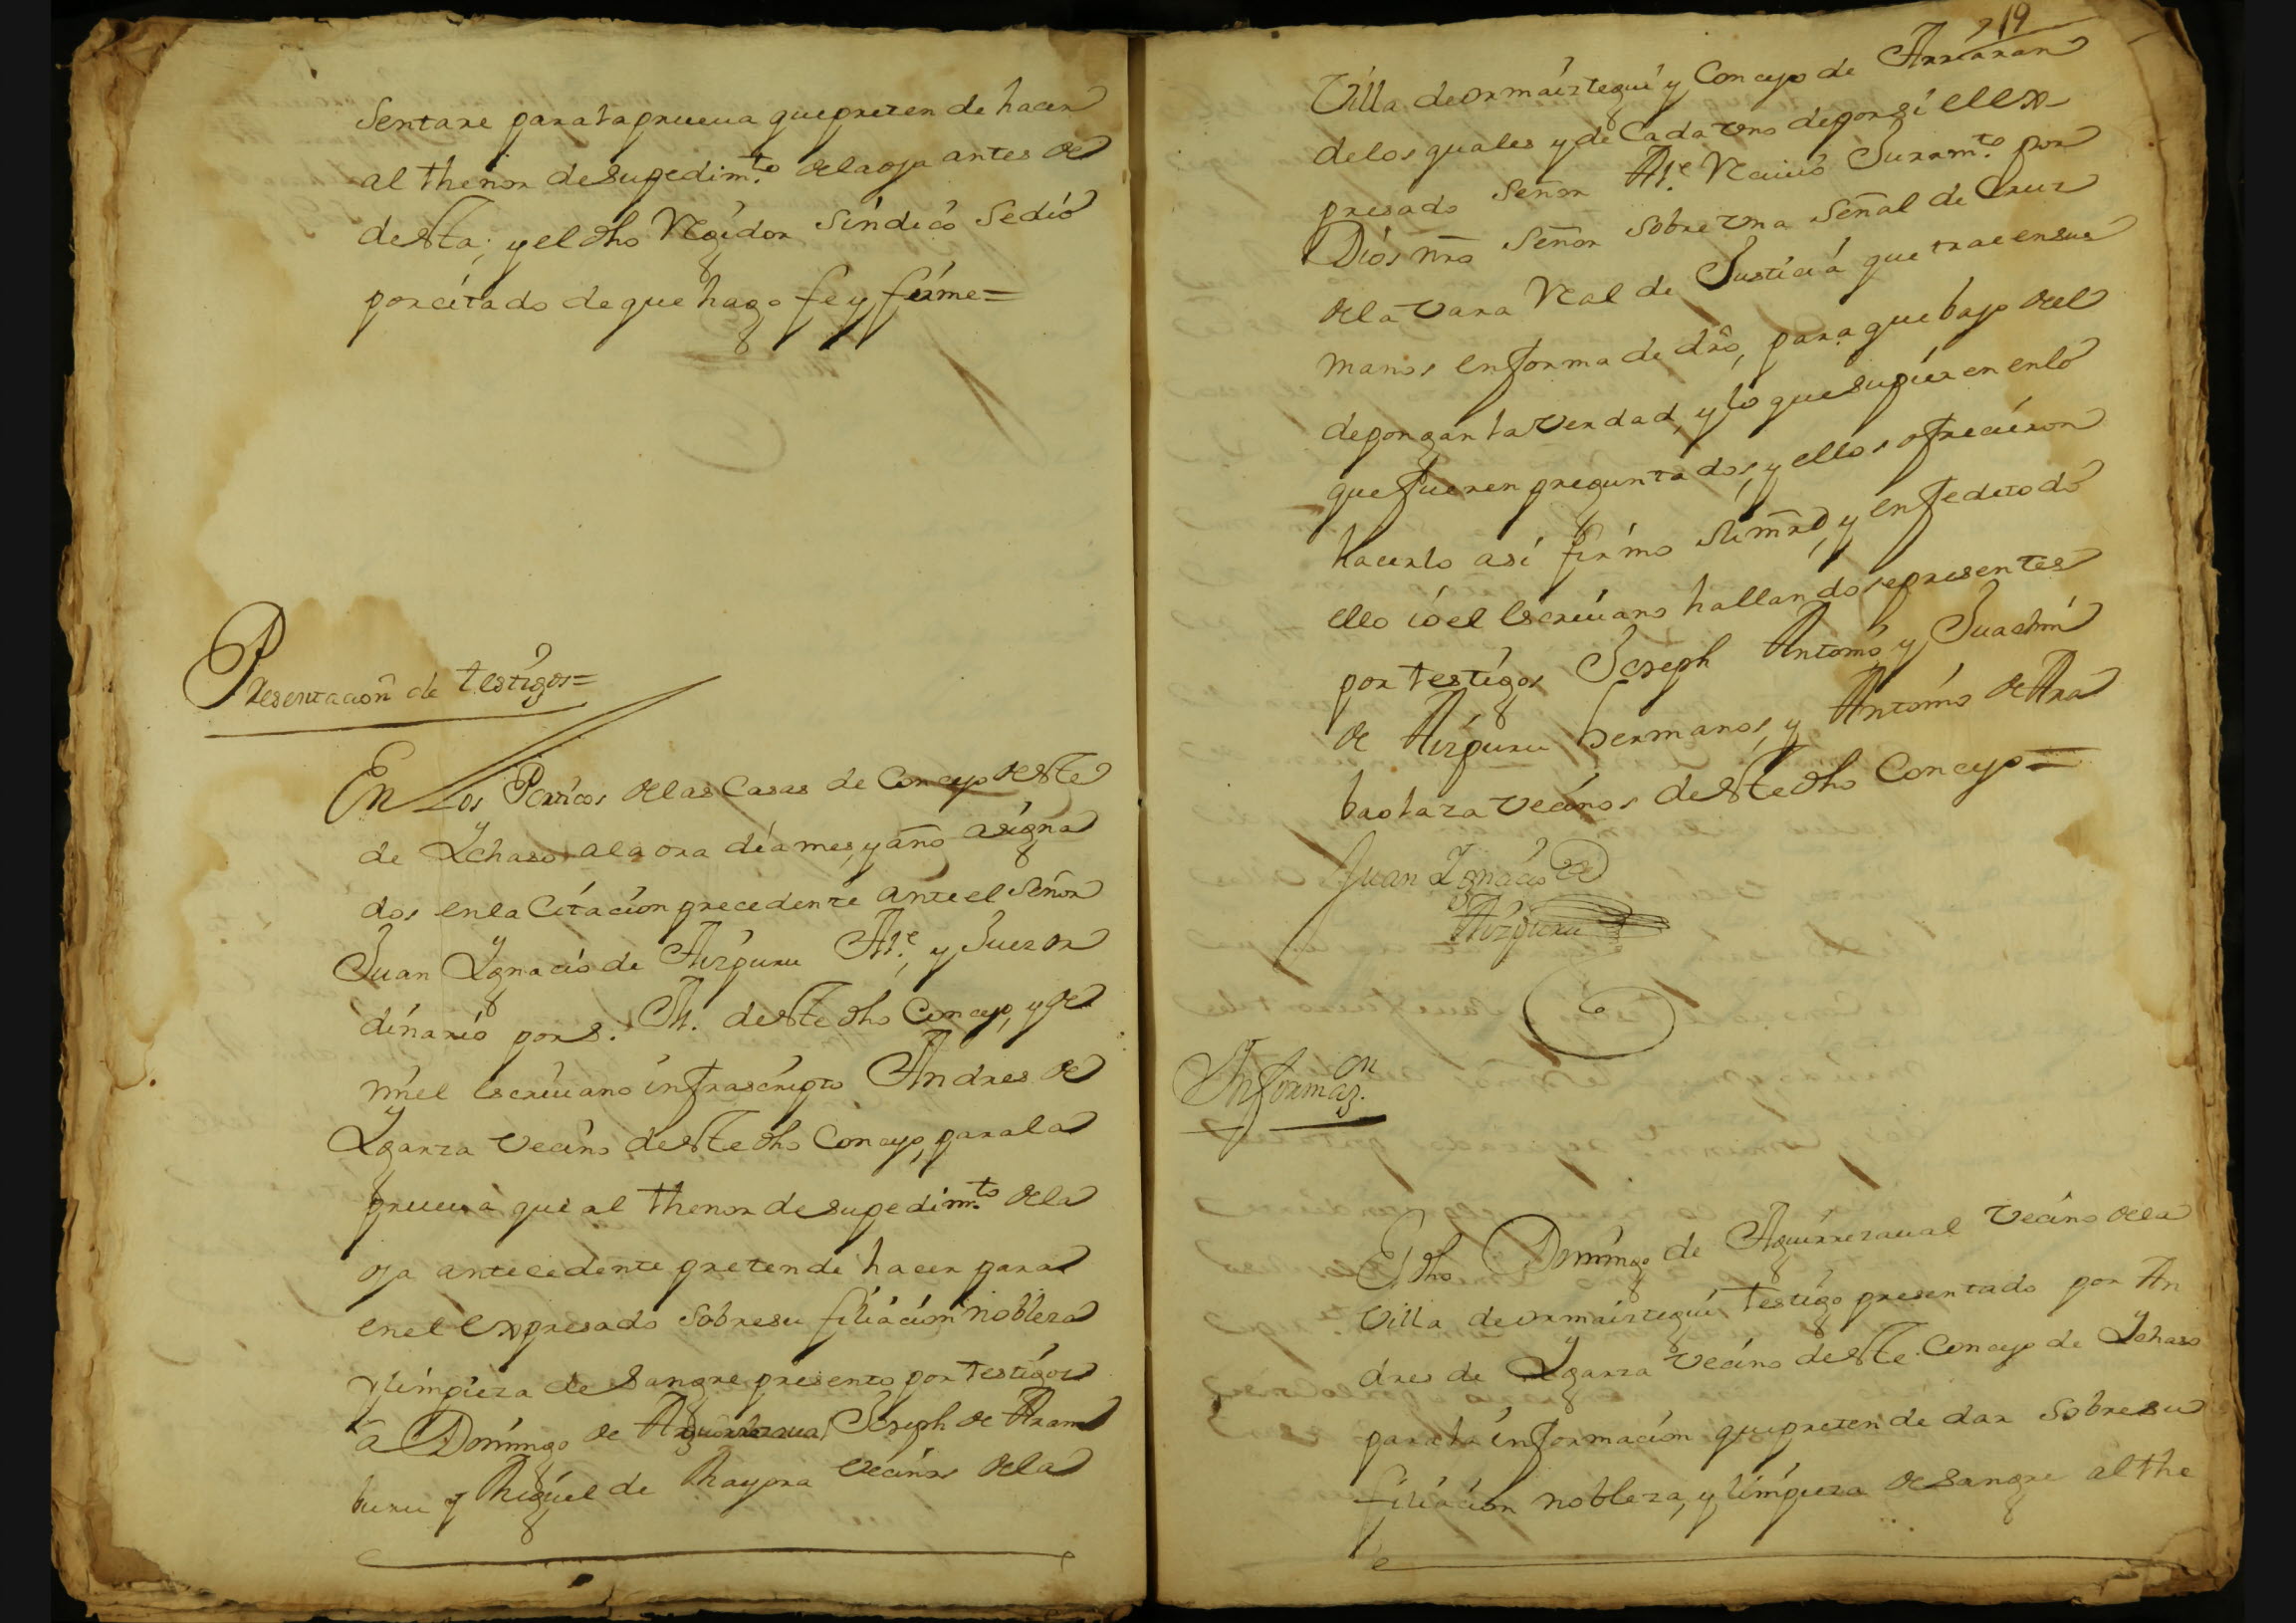 Sentare para la prueua que pretende hacer
al thenor de su pedim.to de la oja antes de
desta; y el dho Regidor Sindico se dio
por citado de que hago fe y firme=
Presentacion de testigos=
En Los Porticos de las Casas de Concejo deste
de Ychaso, a la ora dia mes, y año asigna
dos en la Citacion precedente ante el Señor
Juan Ygnacio de Aizpuru Al.e, y Juez or
dinario por s. M. deste dho Concejo, y de
mi el escriuano infrascripto Andres de
Ygarza vecino deste dho Concejo, para la
prueua que al thenor de su pedim.to de la
oja antecedente pretende hacer para
en el expresado sobre su filiacion nobleza
y limpieza de sangre presento por testigos
a Domingo de Joseph de Aram
buru y Miguel de Mayora vecinos de la
219
Villa de ormaiztegui y Concejo de Arriaran
de los quales y de Cada vno de por si el ex
presado Señor Al.e Reciuio Juram.to por
Dios nro Señor sobre vna señal de Cruz
de la vara Real de Justicia que trae en sus
manos en forma de dro, para que bajo del
depongan la verdad, y lo que supieren en lo
que fueren preguntados, y ellos ofrecieron
hacerlo asi firmo su mrd, y en fe de todo
ello io el escriuano hallandose presentes
por testigos Joseph Antonio y Juachin
de Aizpuru hermanos, y Antonio de Ara
baolaza vecinos deste dho Concejo=
Juan Ygnacio de
Aizpuru
Informaz.on
El dho Domingo de Aguirrezaual vecino de la
Villa de ormaiztegui testigo presentado por An
dres de Ygarza vecino deste Concejo de Ychaso
para la informacion que pretende dar sobre su
filiacion nobleza, y limpieza de sangre al the